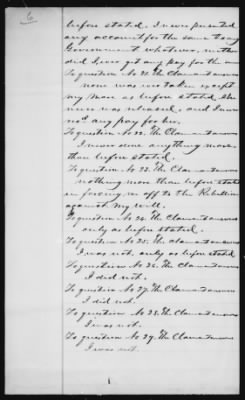 6
before stated. I never presented
any account for the same to any
Government whatever, neither
did I ever get any pay for the same
To question No 21. The Claimant answers
none was ever taken except
my mare as before stated. She
never was returned, and I never
rec'd any pay for her.
To question No 22. The Claimant answers
I never done anything more
than before stated.
To question No 23. The Claimant answers
nothing more than before stated
in forcing me off to the Rebellion
against my will.
To question No 24. The Claimant answers
only as before stated.
To question No 25. The claimant answers
I was not, only as before stated
To question No 26. The Claimant answers
I did not.
To question No 27. The Claimant answers
I did not.
To question No 28. The Claimant answers
I was not.
To question No 29. The Claimant answers
I was not.